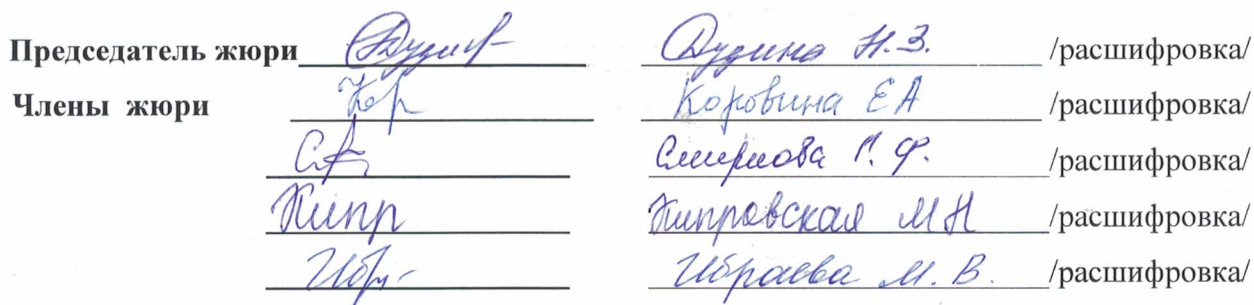 Председатель жюри Дудин Дудина Н.З. /расшифровка/
Члены жюри Кор Коровина Е А /расшифровка/
Смирнова Г. Ф. /расшифровка/
Кипр Кипровская М Н /расшифровка/
Ибр Ибраева М. В. /расшифровка/